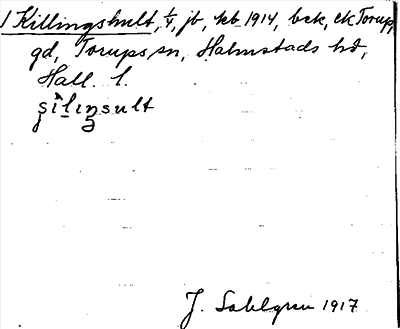 1 Killingshult, 1/4, jb, kb 1914, bck, ek Torup,
gd, Torups sn, Halmstads hd,
Hall. l.
J. Sahlgren 1917